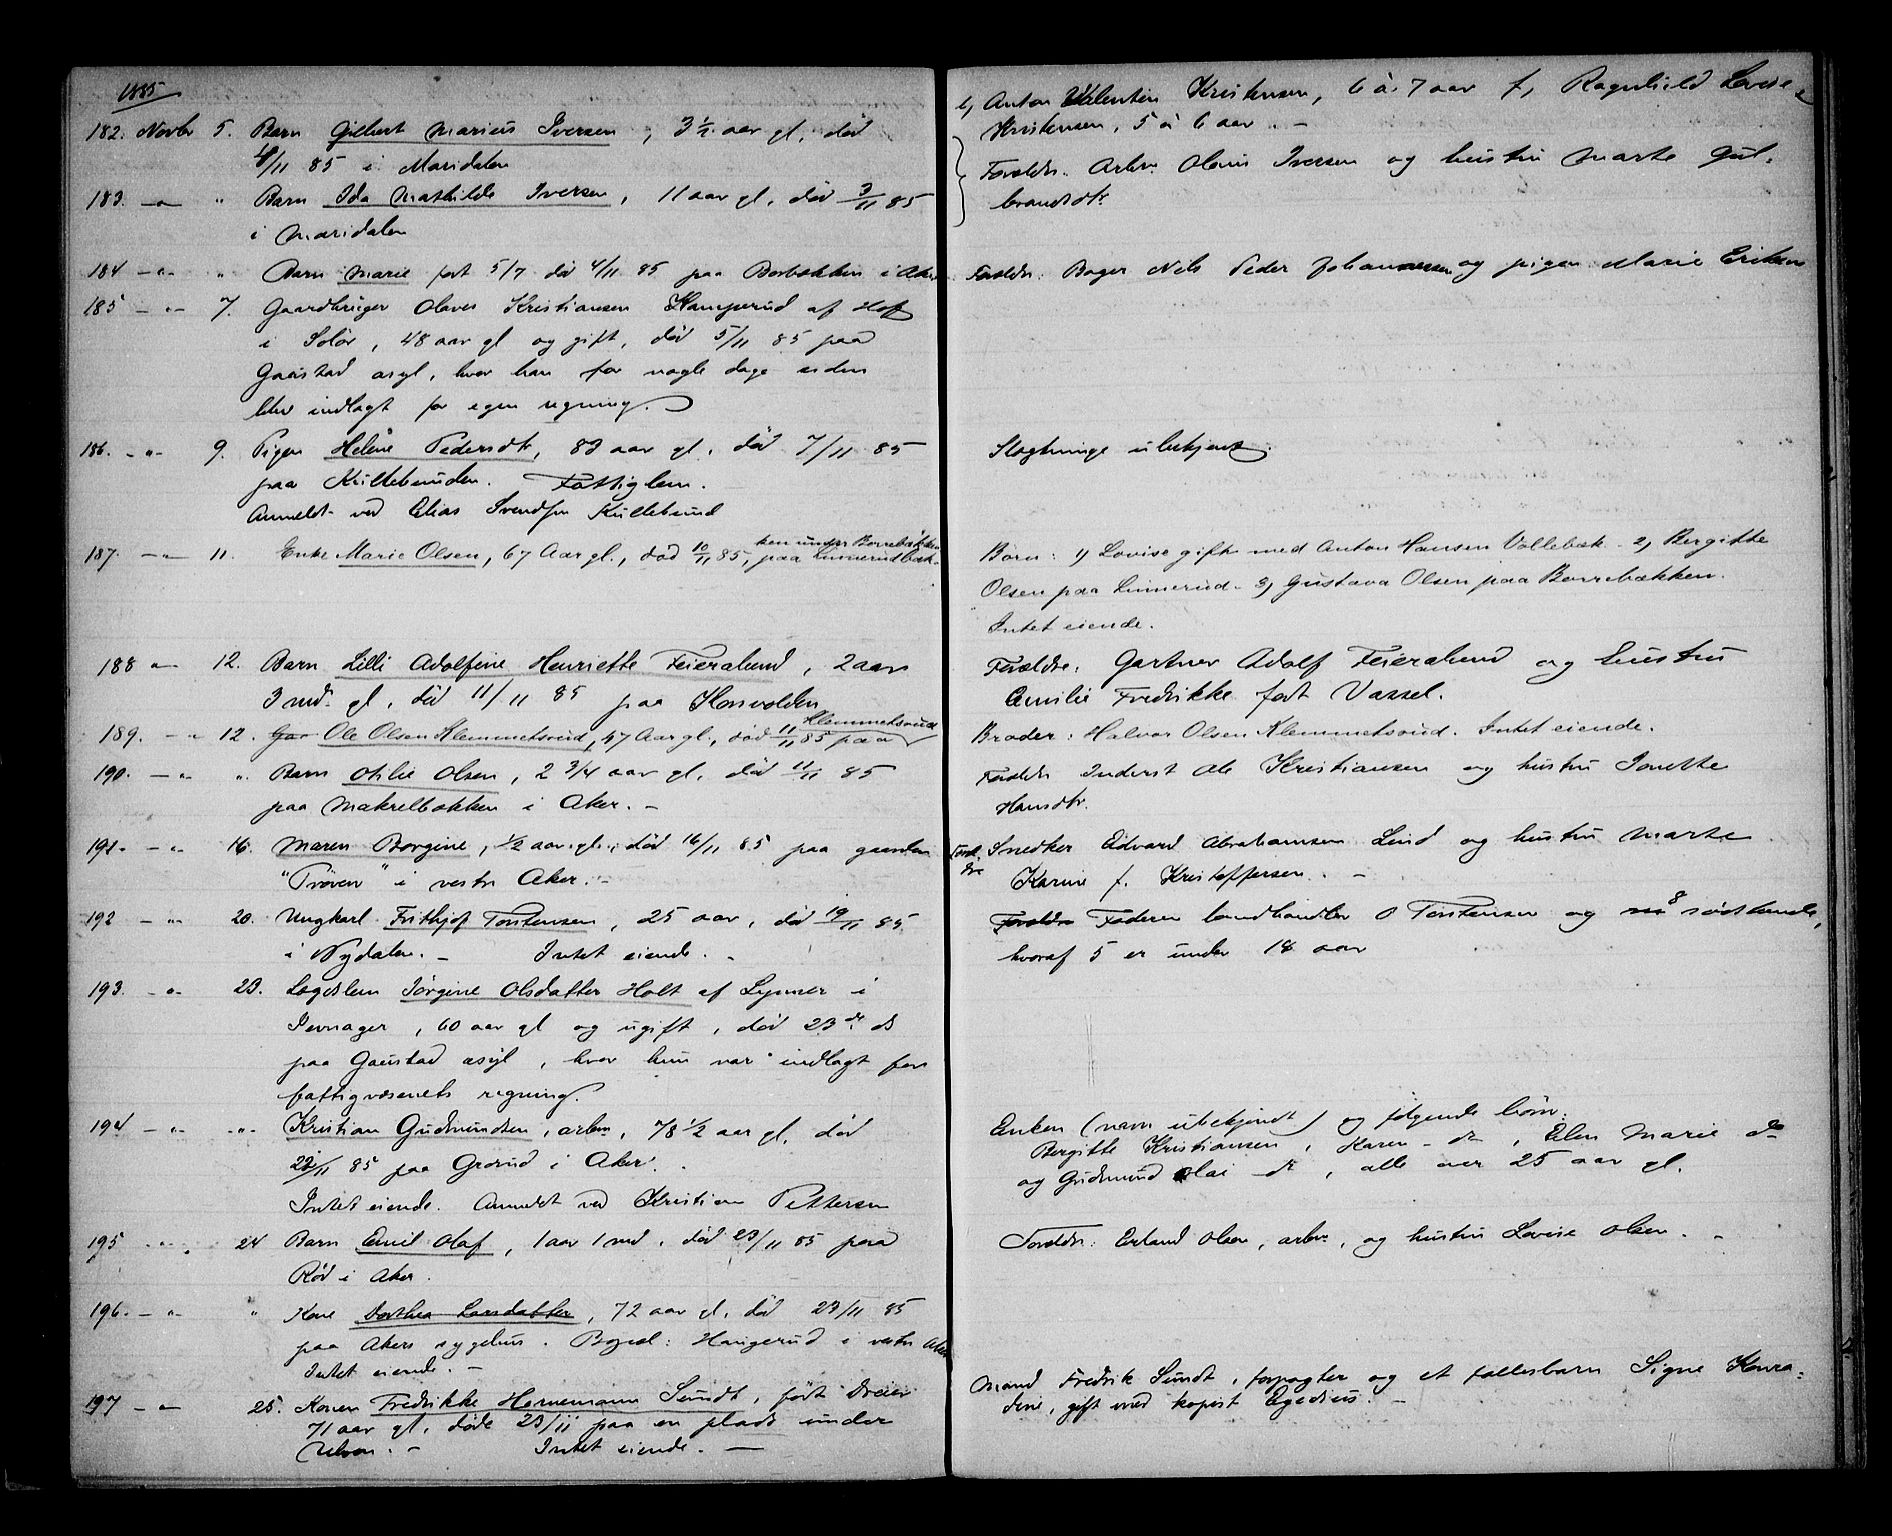 1885
182. Novbr 5. Barn Gilbert Marius Iversen, 3 ½ aar gl, død
4/11 85 i Maridalen
183. -"- " Barn Ida Mathilde Iversen, 11 aar gl, død 3/11 85
i Maridalen
184 -"- " Barn Marie født 5/7 død 4/11 85 paa Borbækken i Aker
185 -"- 7. Gaardbruger Olaves Kristiansen Kamperud af Hof
i Solør, 48 aar gl og gift, død 5/11 85 paa
Gaustad asyl, hvor han for nogle dage siden
blev indlagt for egen regning.
186. -"- 9. Pigen Helene Pedersdtr, 83 aar gl. død 7/11 85
paa Kullebunden. Fattiglem.
Anmeldt ved Elias Svendsen Kullebund
187. -"- 11. Enke Marie Olsen, 67 Aar gl., død 10/11 85, paa Linnerudbæk-
ken under Borrebækken
188 -"- 12. Barn Lilli Adolfine Henriette Feierabend, 2 aar
3 md. gl, død 11/11 85 paa Korsvolden
189. -"- 12. Gaa Ole Olsen Klemmetsrud, 47 Aar gl., død 11/11 85 paa
Klemmetsrud
190. -"- " Barn Otilie Olsen, 2 3/4 aar gl, død 11/11 85
paa Makrelbækken i Aker. -
191. -"- 16. Maren Borgine, ½ aar gl., død 16/11 85 paa gaarden
"Prøven" i vestre Aker. -
192 -"- 20. Ungkarl Frithjof Torstensen, 25 aar, død 19/11 85
i Nydalen. - Intet eiende. -
193. -"- 23. Lægdslem Jørgine Olsdatter Holt af Lynner i
Jevnager, 60 aar gl og ugift, død 23de ds
paa Gaustad asyl, hvor hun var indlagt for
fattigvæsenets regning.
194 -"- -"- Kristian Gudmundsen, arbm, 78 ½ aar gl, død
22/11 85 paa Grorud i Aker.
Intet eiende. Anmeldt ved Kristian Pettersen
195 -"- 24 Barn Emil Olaf, 1 aar 1 md. død 23/11 85 paa
Rød i Aker.
196. -"- " Kone Dorthea Larsdatter, 72 aar gl. død 23/11 85
paa Akers sygehus. Bopæl: Haugerud i vestre Aker
Intet eiende. -
197 -"- 25. Konen Fredrikke Hornemann Sundt, født Dreier
71 aar gl, døde 23/11 paa en plads under
Ulven. - Intet eiende. -
e, Anton Valentin Kristensen, 6 à 7 aar f, Ragnhild Lovise
Kristensen, 5 à 6 aar. -
Forældr. Arbm. Olaus Iversen og hustru Marte Gul-
brandsdtr.
Forældr. Bager Nils Peder Johannessen og pigen Marie Eriksen
Slægtninge ubekjent.
Børn: 1) Lovise gift med Anton Hansen Vollebæk 2, Bergitte
Olsen paa Linnerud. 3, Gustava Olsen paa Borrebækken.
Intet eiende.
Forældre. Gartner Adolf Feierabend og hustru
Emilie Fredrikke født Vassel.
Broder: Halvor Olsen Klemmetsrud. Intet eiende.
Forældr. Inderst Ole Kristiansen og hustru Jonette
Hansdtr.
Forældre Snedker Edvard Abrahamsen Lind og hustru Marte
Karine f. Kristoffersen. -
Forældre Faderen landhandler O Torstensen og 8 søskende,
hvoraf 5 er under 18 aar
Enken (navn ubekjendt) og følgende børn:
Bergitte Kristiansen, Karen - do, Elen Marie do
og Gudmund Olai do, alle over 25 aar gl.
Forældr: Erland Olsen, arbm, og hustru Lovise Olsen. -
Mand Fredrik Sundt, forpagter og et fællesbarn Signe Konra-
dine, gift med kopist Egedius. -